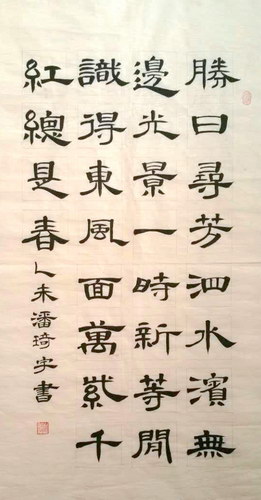 勝日尋芳泗水濱無
邊光景一時新等閒
識得東風面萬紫千
紅總是春乙未潘琦字書